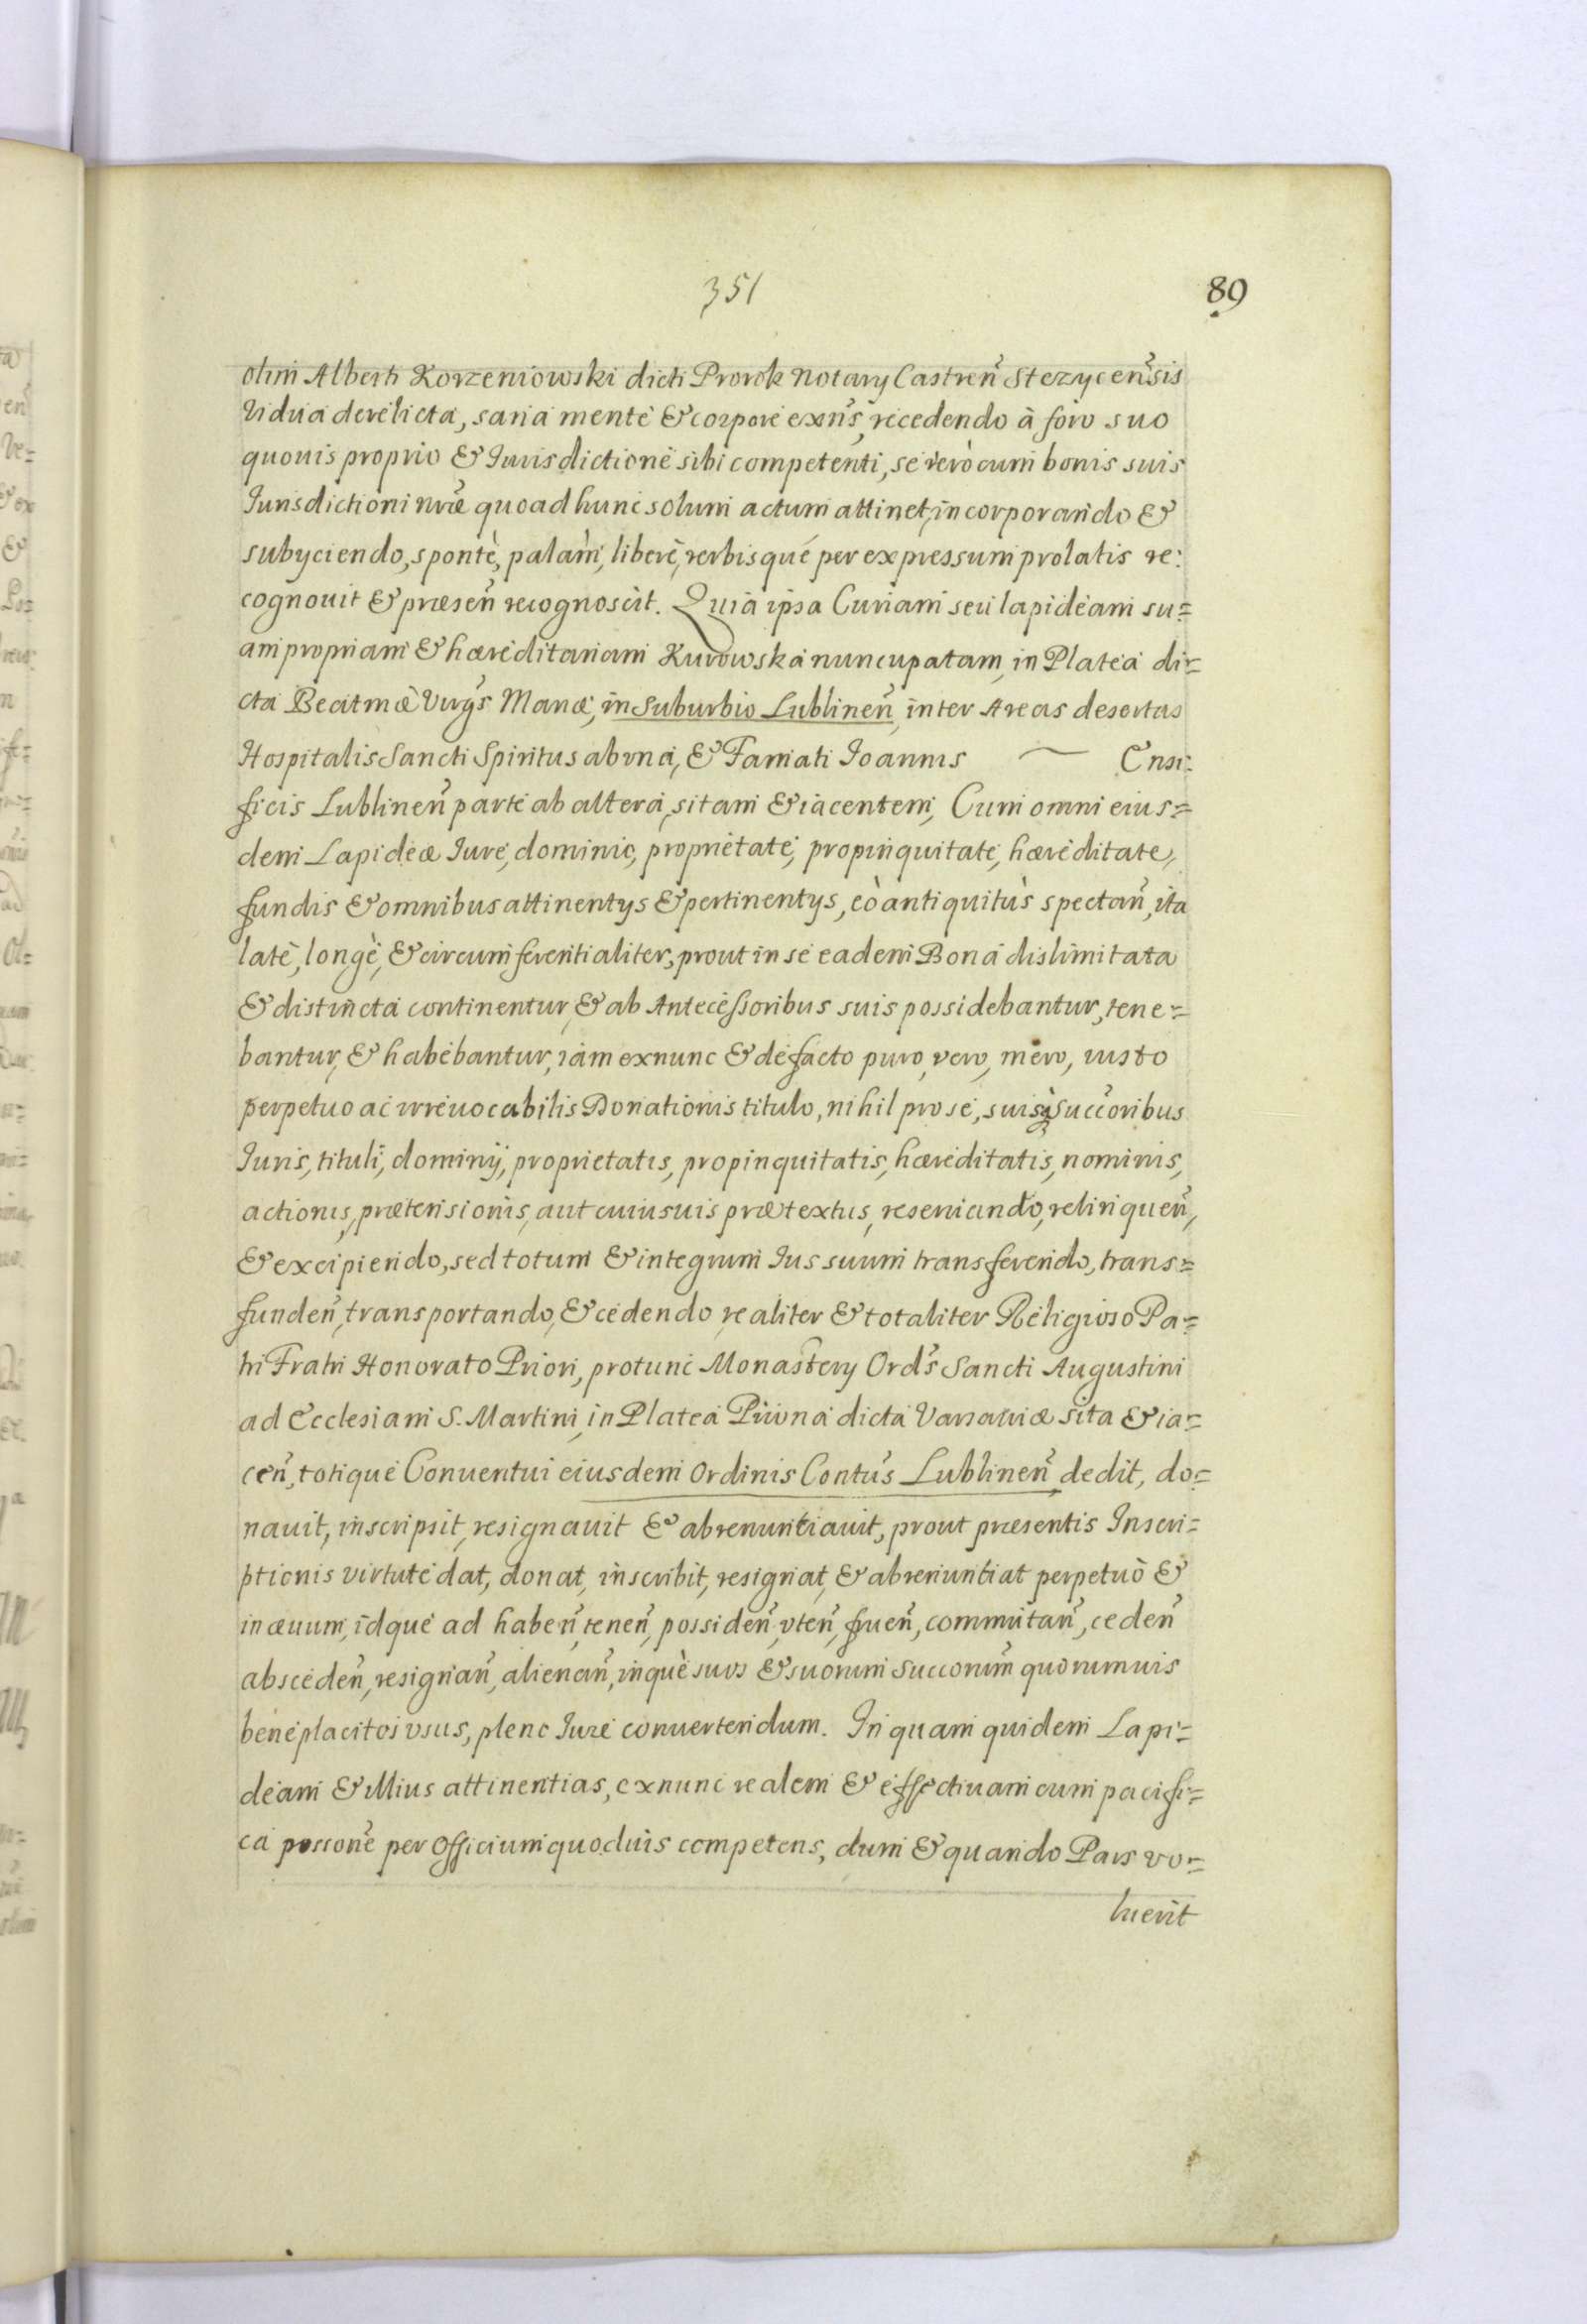 351
89
olim Alberti Korzeniowski dicti Prorok Notarÿ Castreñ Stezyceñsis
Vidua derelicta, sana mente & corpore exñs, recedendo à foro suo
quouis proprio & Iurisdictione sibi competenti, se verò cum bonis suis
Iurisdictioni nræ quoad hunc solum actum attinet, incorporando &
subÿciendo, spontè, palàm, liberè, verbisque per expressum prolatis re:
cognouit & præseñ recognoscit. Quia ipsa Curiam seu lapideam su=
am propriam & hæreditariam Kurowska nuncupatam, in Platea di=
cta Beatmæ Virgs Mariæ, in Suburbio Lublineñ, inter Areas desertas
Hospitalis Sancti Spiritus ab vna, & Famati Ioannis ~ Ensi:
ficis Lublineñ parte ab altera, sitam & iacentem, Cum omni eius=
dem Lapideæ Iure, dominio, proprietate, propinquitate, hæreditate,
fundis & omnibus attinentÿs & pertinentÿs, eò antiquitùs spectañ, ita
latè, longè, & circumferentialiter, prout in se eadem Bona dislimitata
& distincta continentur, & ab Antecessoribus suis possidebantur, tene=
bantur, & habebantur, iam exnunc & de facto puro, vero, mero, iusto
perpetuo ac irreuocabilis Donationis titulo, nihil pro se, suisq̀ Succoribus
Iuris, tituli, dominÿ, proprietatis, propinquitatis, hæreditatis, nominis,
actionis, prætensionis, aut cuiusuis prætextus, reseruando, relinqueñ,
& excipiendo, sed totum & integrum Ius suum transferendo, trans=
fundeñ, transportando, & cedendo, realiter & totaliter Religioso Pa=
tri Fratri Honorato Priori, protunc Monasterÿ Ords Sancti Augustini
ad Ecclesiam S. Martini, in Platea Piwna dicta Varsauiæ sita & ia=
ceñ, totique Conuentui eiusdem Ordinis Contus Lublineñ dedit, do=
nauit, inscripsit, resignauit & abrenuntiauit, prout præsentis Inscri=
ptionis virtute dat, donat, inscribit, resignat, & abrenuntiat perpetuò &
in æuum, idque ad habeñ, teneñ, possideñ, vteñ, frueñ, commutañ, cedeñ
abscedeñ, resignañ, alienañ, inquè suos & suorum Succorum quorumuis
beneplacitos vsus, pleno Iure conuertendum. In quam quidem Lapi=
deam & illius attinentias, exnunc realem & effectiuam cum pacifi=
ca possone per Officium quoduis competens, dum & quando Pars vo=
luerit